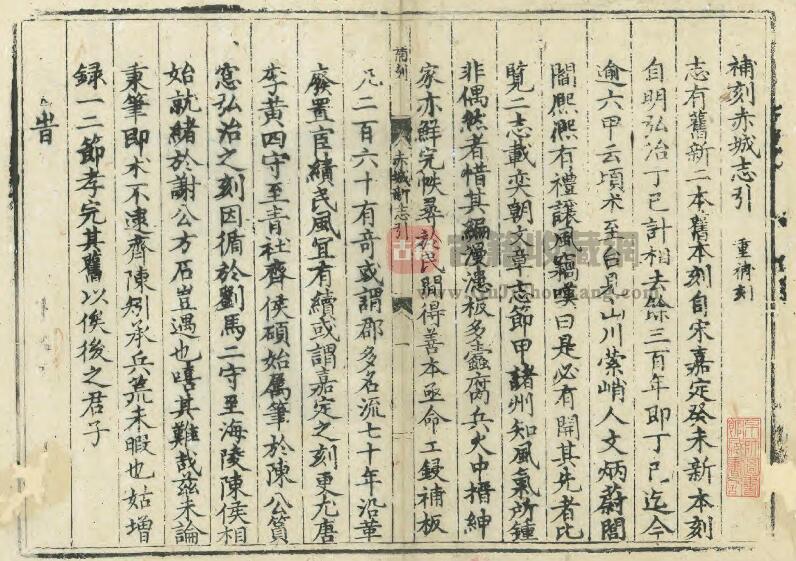 補刻赤城志引 重補刻
志有舊新二本舊本刻自宋嘉定癸未新本刻
自明弘治丁巳計相去餘三百年即丁巳迄今
逾六甲云頃朮至台見山川縈峭人文炳蔚閭
閻熈熈有禮讓風竊嘆曰是必有開其先者比
覽二志載奕朝文章志節甲諸州知風氣所鍾
非偶然者惜其編漫漶板多蠹腐兵火中搢紳
家亦鮮完帙尋於民間得善本亟命工鋟補板
補刻 赤城新志引 一
凡二百六十有奇或謂郡多名流七十年沿革
廢置宦績民風宜有續或謂嘉定之刻更尤唐
李黃四守至青社齊侯碩始属筆於陳公筼
窓弘治之刻因循於劉馬二守至海陵陳侯相
始就緒於謝公方石豈遇也嘻其難哉茲未論
秉筆即朮不逮齊陳矧承兵荒未暇也姑增
録一二節孝完其舊以俟後之君子
旹
古籍收藏網